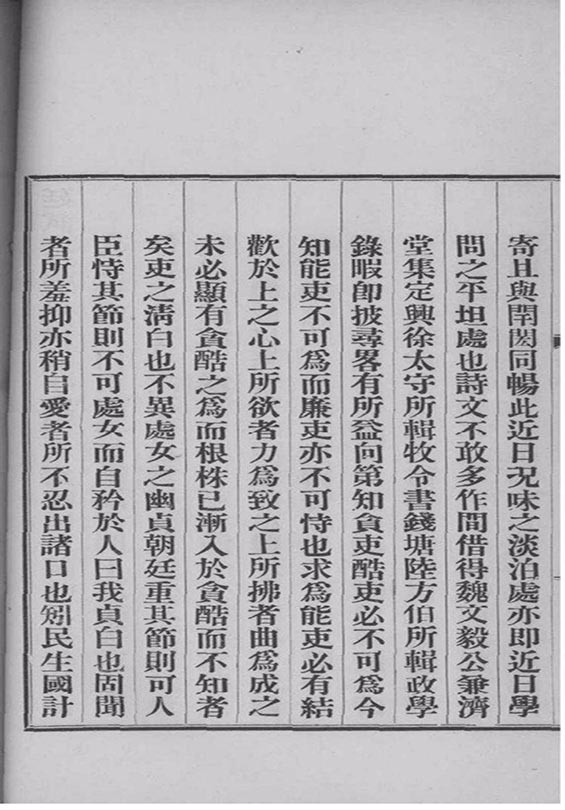 寄且與閈閎同暢此近日況味之淡泊處亦卽近日學
問之平坦處也詩文不敢多作間借得魏文毅公兼濟
堂集定興徐太守所輯牧令書錢塘陸方伯所輯政學
錄暇卽披尋畧有所益向第知貪吏酷吏必不可爲今
知能吏不可爲而廉吏亦不可恃也求爲能吏必有結
歡於上之心上所欲者力爲致之上所拂者曲爲成之
未必顯有貪酷之爲而根株已漸入於貪酷而不知者
矣吏之淸白也不異處女之幽貞朝廷重其節則可人
臣恃其節則不可處女而自矜於人曰我貞白也固聞
者所羞抑亦稍自愛者所不忍出諸口也矧民生國計